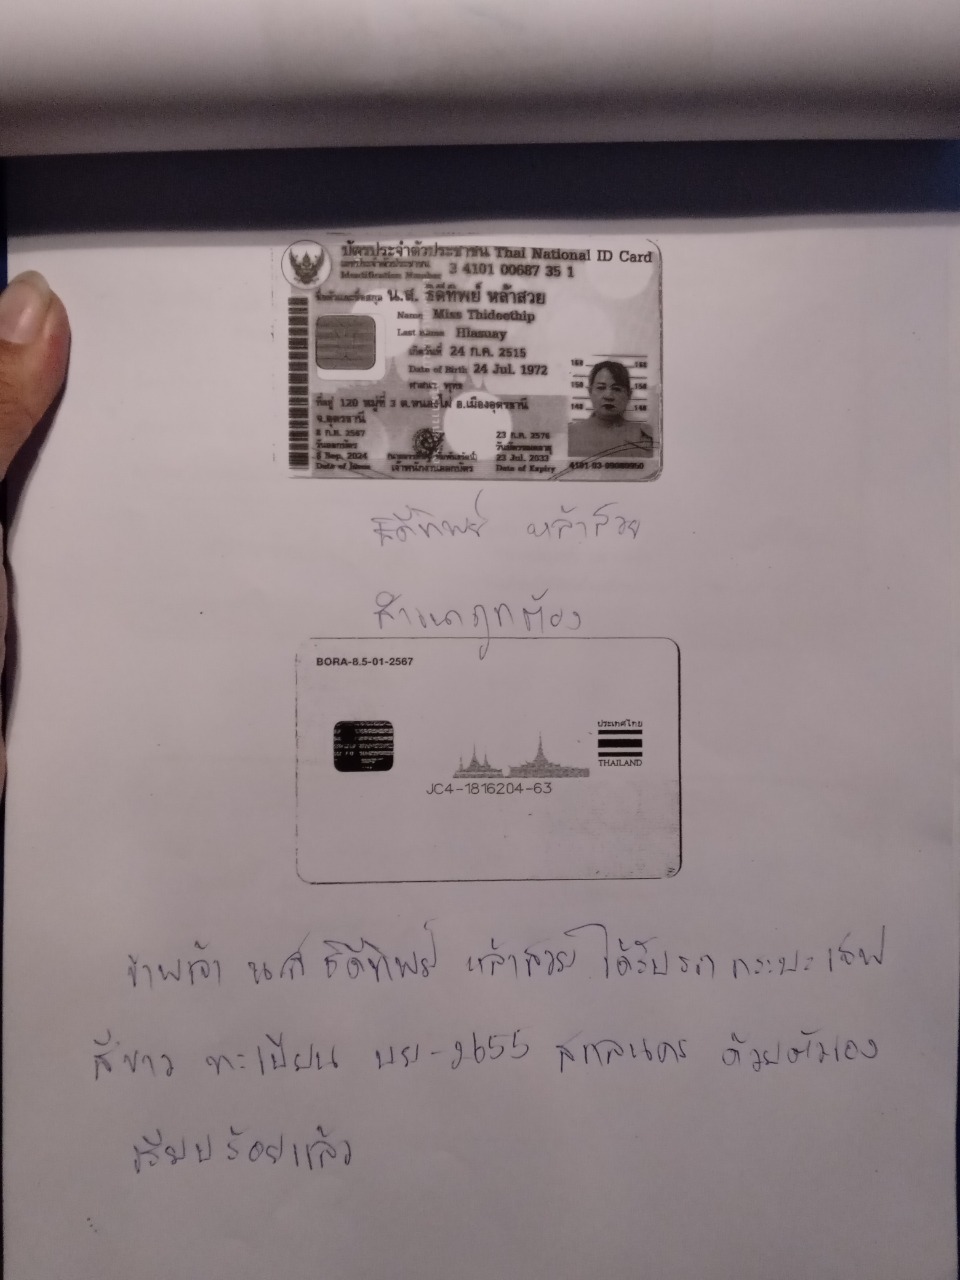 บัตรประจำตัวประชาชน Thai National ID Card
เลขประจำตัวประชาชน
Identification Number 3 4101 00687 35 1
ชื่อตัวและชื่อสกุล น.ส. ธิดีทิพย์ หล้าสวย
Name Miss Thideethip
Last name Hlasuay
เกิดวันที่ 24 ก.ค. 2515
Date of Birth 24 Jul. 1972
ศาสนา พุทธ
ที่อยู่ 120 หมู่ที่ 3 ต.หนองไฝ่ อ.เมืองอุดรธานี
จ.อุดรธานี
6 ก.ย. 2567
วันออกบัตร
Sep. 2024
Date of Issue
เจ้าพนักงานออกบัตร
23 ก.ค. 2576
วันบัตรหมดอายุ
23 Jul. 2033
Date of Expiry
160 160
150 150
140 140
ธิดีทิพย์ หล้าสวย
สำเนาถูกต้อง
BORA-8.5-01-2567
ประเทศไทย
THAILAND
JC4-1816204-63
ข้าพเจ้า น.ส ธิดีทิพย์ หล้าสวย ได้รับรถ กระบะ เชฟ
สีขาว ทะเบียน บย-2655 สกลนคร ด้วยตัวเอง
เรียบร้อยแล้ว